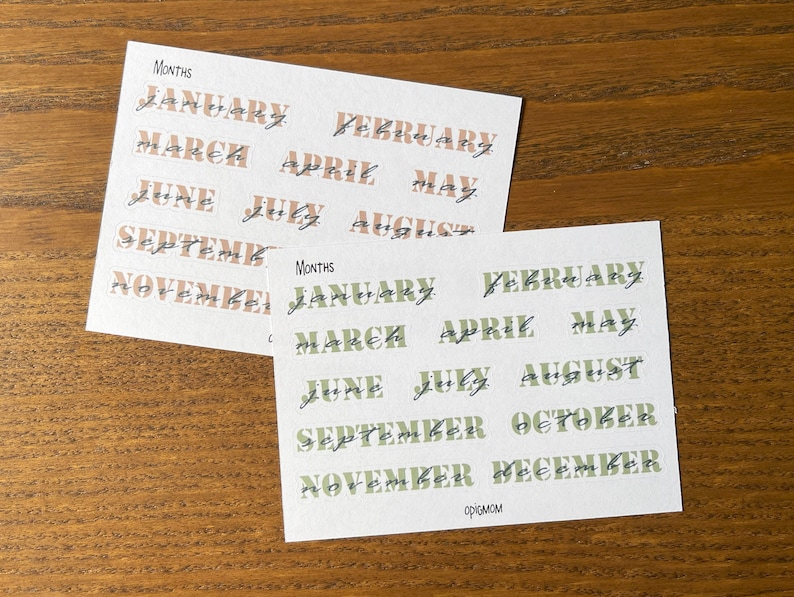 Months
JANUARY january FEBRUARY february
MARCH march APRIL april MAY may
JUNE june JULY july AUGUST august
SEPTEMB septemb
NOVEMBE novembe
Months
JANUARY january FEBRUARY february
MARCH march APRIL april MAY may
JUNE june JULY july AUGUST august
SEPTEMBER september OCTOBER october
NOVEMBER november DECEMBER december
OPIGMOM